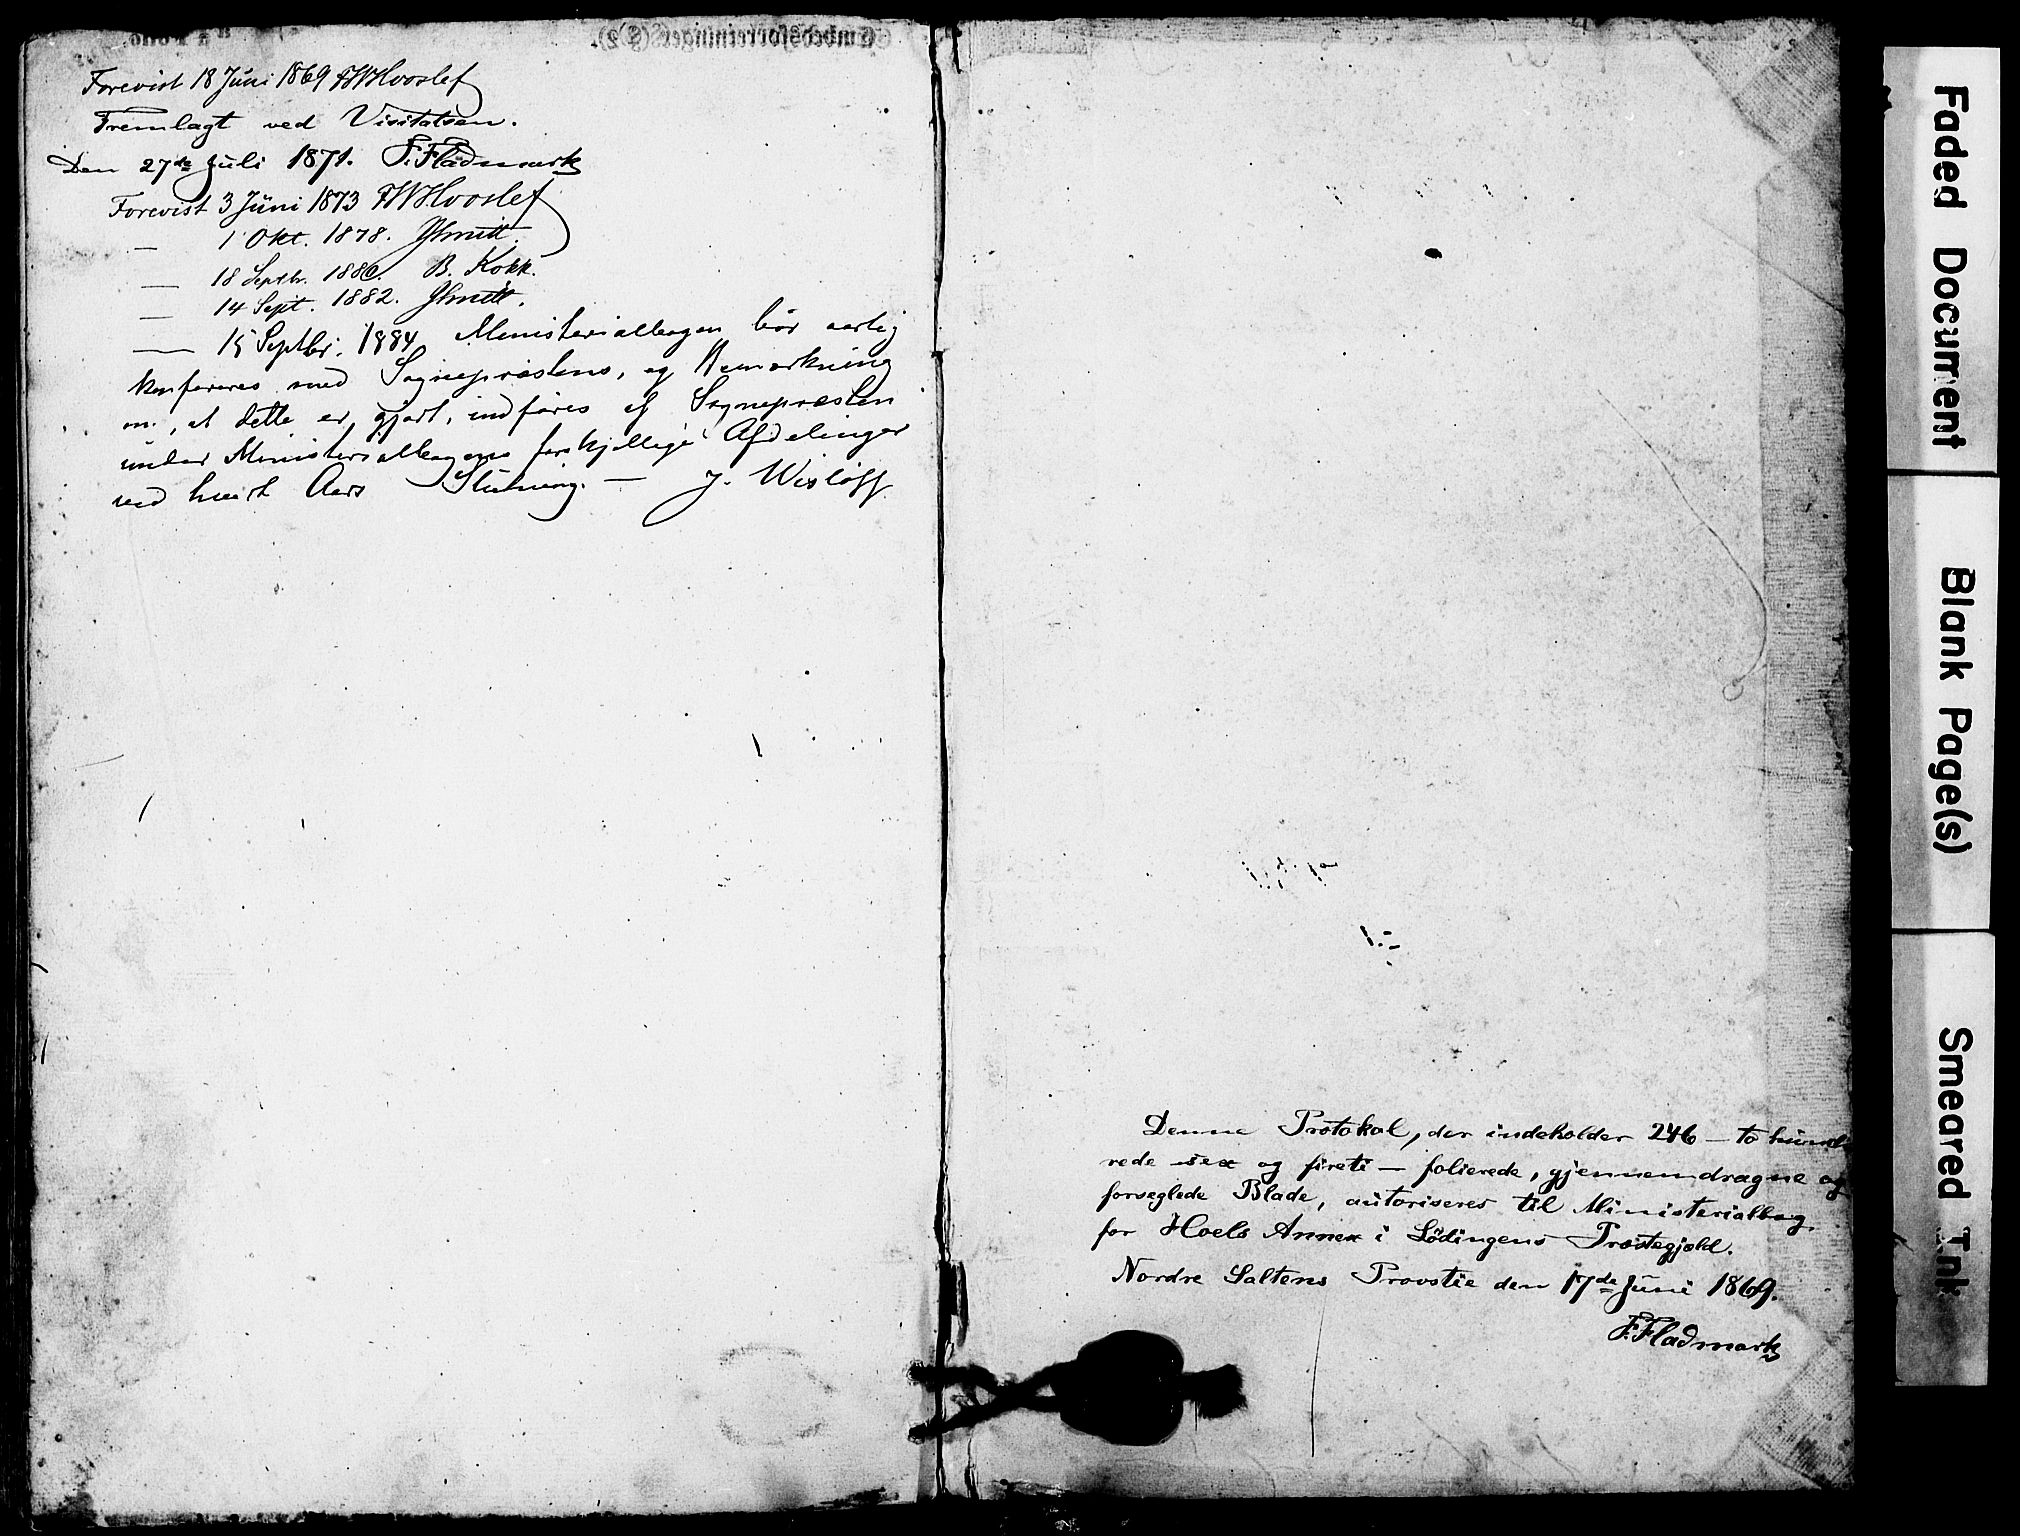 Forevist 18 Juni 1869 FWHvoslef
Fremlagt ved Visitatsen.
Den 27de Juli 1871. F. Fladmark
Forevist 3 Juni 1873 FWHvoslef
— 1 Okt. 1878. JSmitt.
— 18 Septbr. 1880. B. Kokk.
— 14 Sept. 1882. JSmitt.
— 15 Septbr. 1884 Ministerialbogen bör aarlig
konfereres med Sognepræstens, og Bemærkning
om, at dette er gjort, indföres af Sognepræsten
under Ministerialbogens forskjellige Afdelinger
ved hvert Aars Slutning. — J. Wislöff.
Embedsforretninger (§ 2).
Denne Protokol, der indeholder 246 – to hund
rede sex og fireti – folierede, gjennemdragne og
forseglede Blade, autoriseres til Ministerialbog
for Hoels Annex i Lödingens Præstegjæld.
Nordre Saltens Provstie den 17de Juni 1869.
F. Fladmark
Faded Document
Blank Page(s)
Smeared Ink